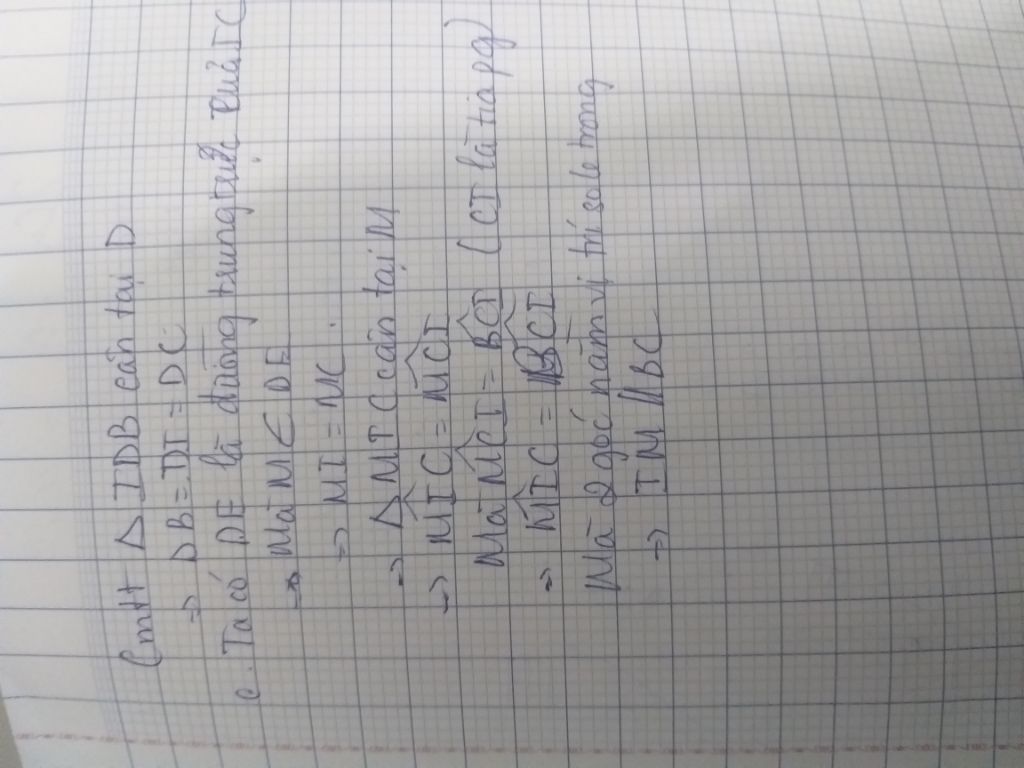 Cmtt Δ IDB cân tại D
=> DB = DI = DC
c. Ta có DE là đường trung trực của IC
-> Mà M ∈ DE
=> MI = MC.
=> Δ MIC cân tại M
=> M̂IC = M̂CI
Mà M̂CI = B̂CI (CI là tia pg)
=> M̂IC = B̂CI
Mà 2 góc nằm vị trí sole trong
=> IM // BC